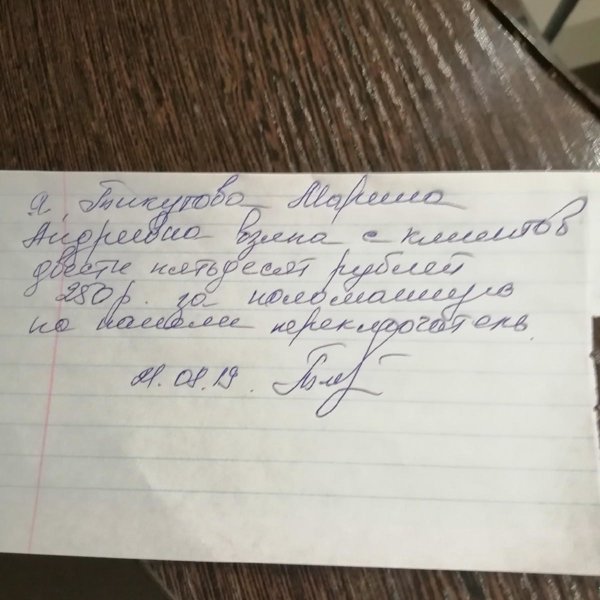 Я Тикутова Марина
Андреевна взяла с клиентов
двести пятьдесят рублей
250р. за поломанную
на панели переключатель.
21.08.19.